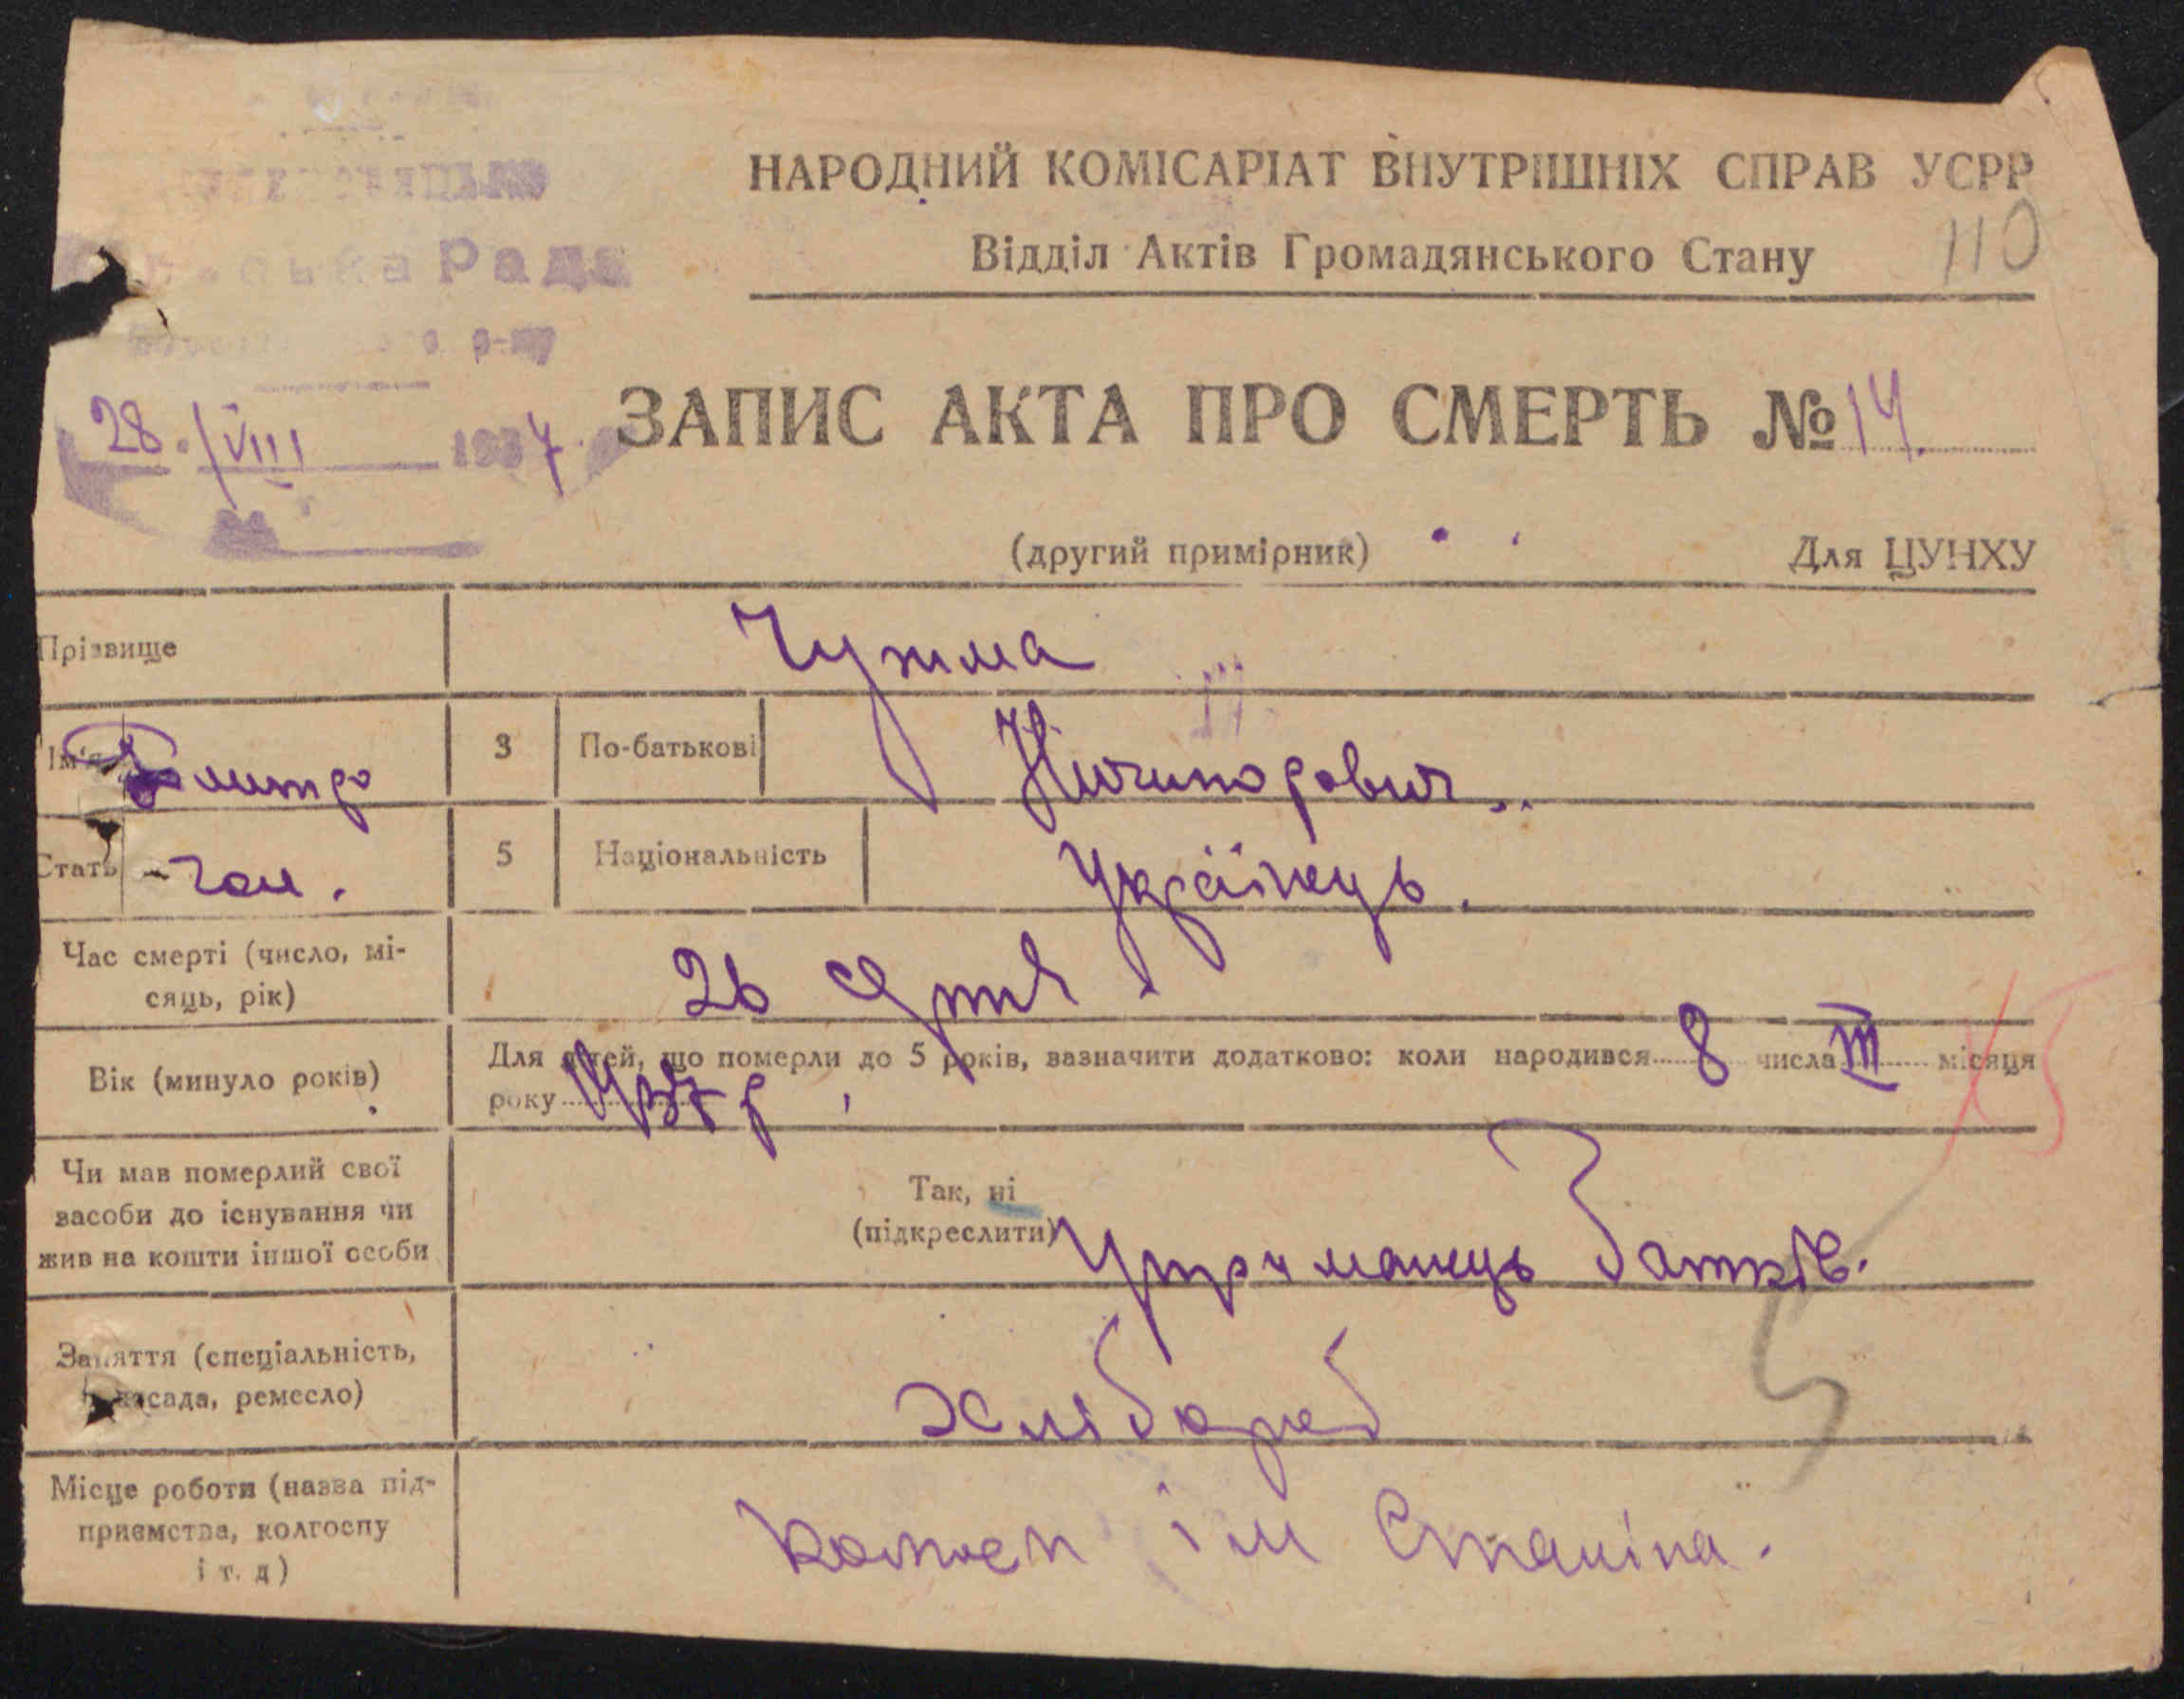 Рада
р-ну
НАРОДНИЙ КОМІСАРІАТ ВНУТРІШНІХ СПРАВ УСРР
Відділ Актів Громадянського Стану
110
28. VIII 1937.
ЗАПИС АКТА ПРО СМЕРТЬ № 14.
(другий примірник) Для ЦУНХУ
Прізвище Чужма
Ім'я Дмитро 3 По-батькові Ничипорович
Стать чол. 5 Національність Українець.
Час смерті (число, мі-
сяць, рік)
26
Вік (минуло років)
Для дітей, що померли до 5 років, зазначити додатково: коли народився 8 числа III місяця
року 1937 р
Чи мав померлий свої
засоби до існування чи
жив на кошти іншої особи
Так, ні
(підкреслити)
Утриманець батьків.
5
Заняття (спеціальність,
посада, ремесло)
хлібороб
Місце роботи (назва під-
приємства, колгоспу
і т. д)
ім Сталіна.